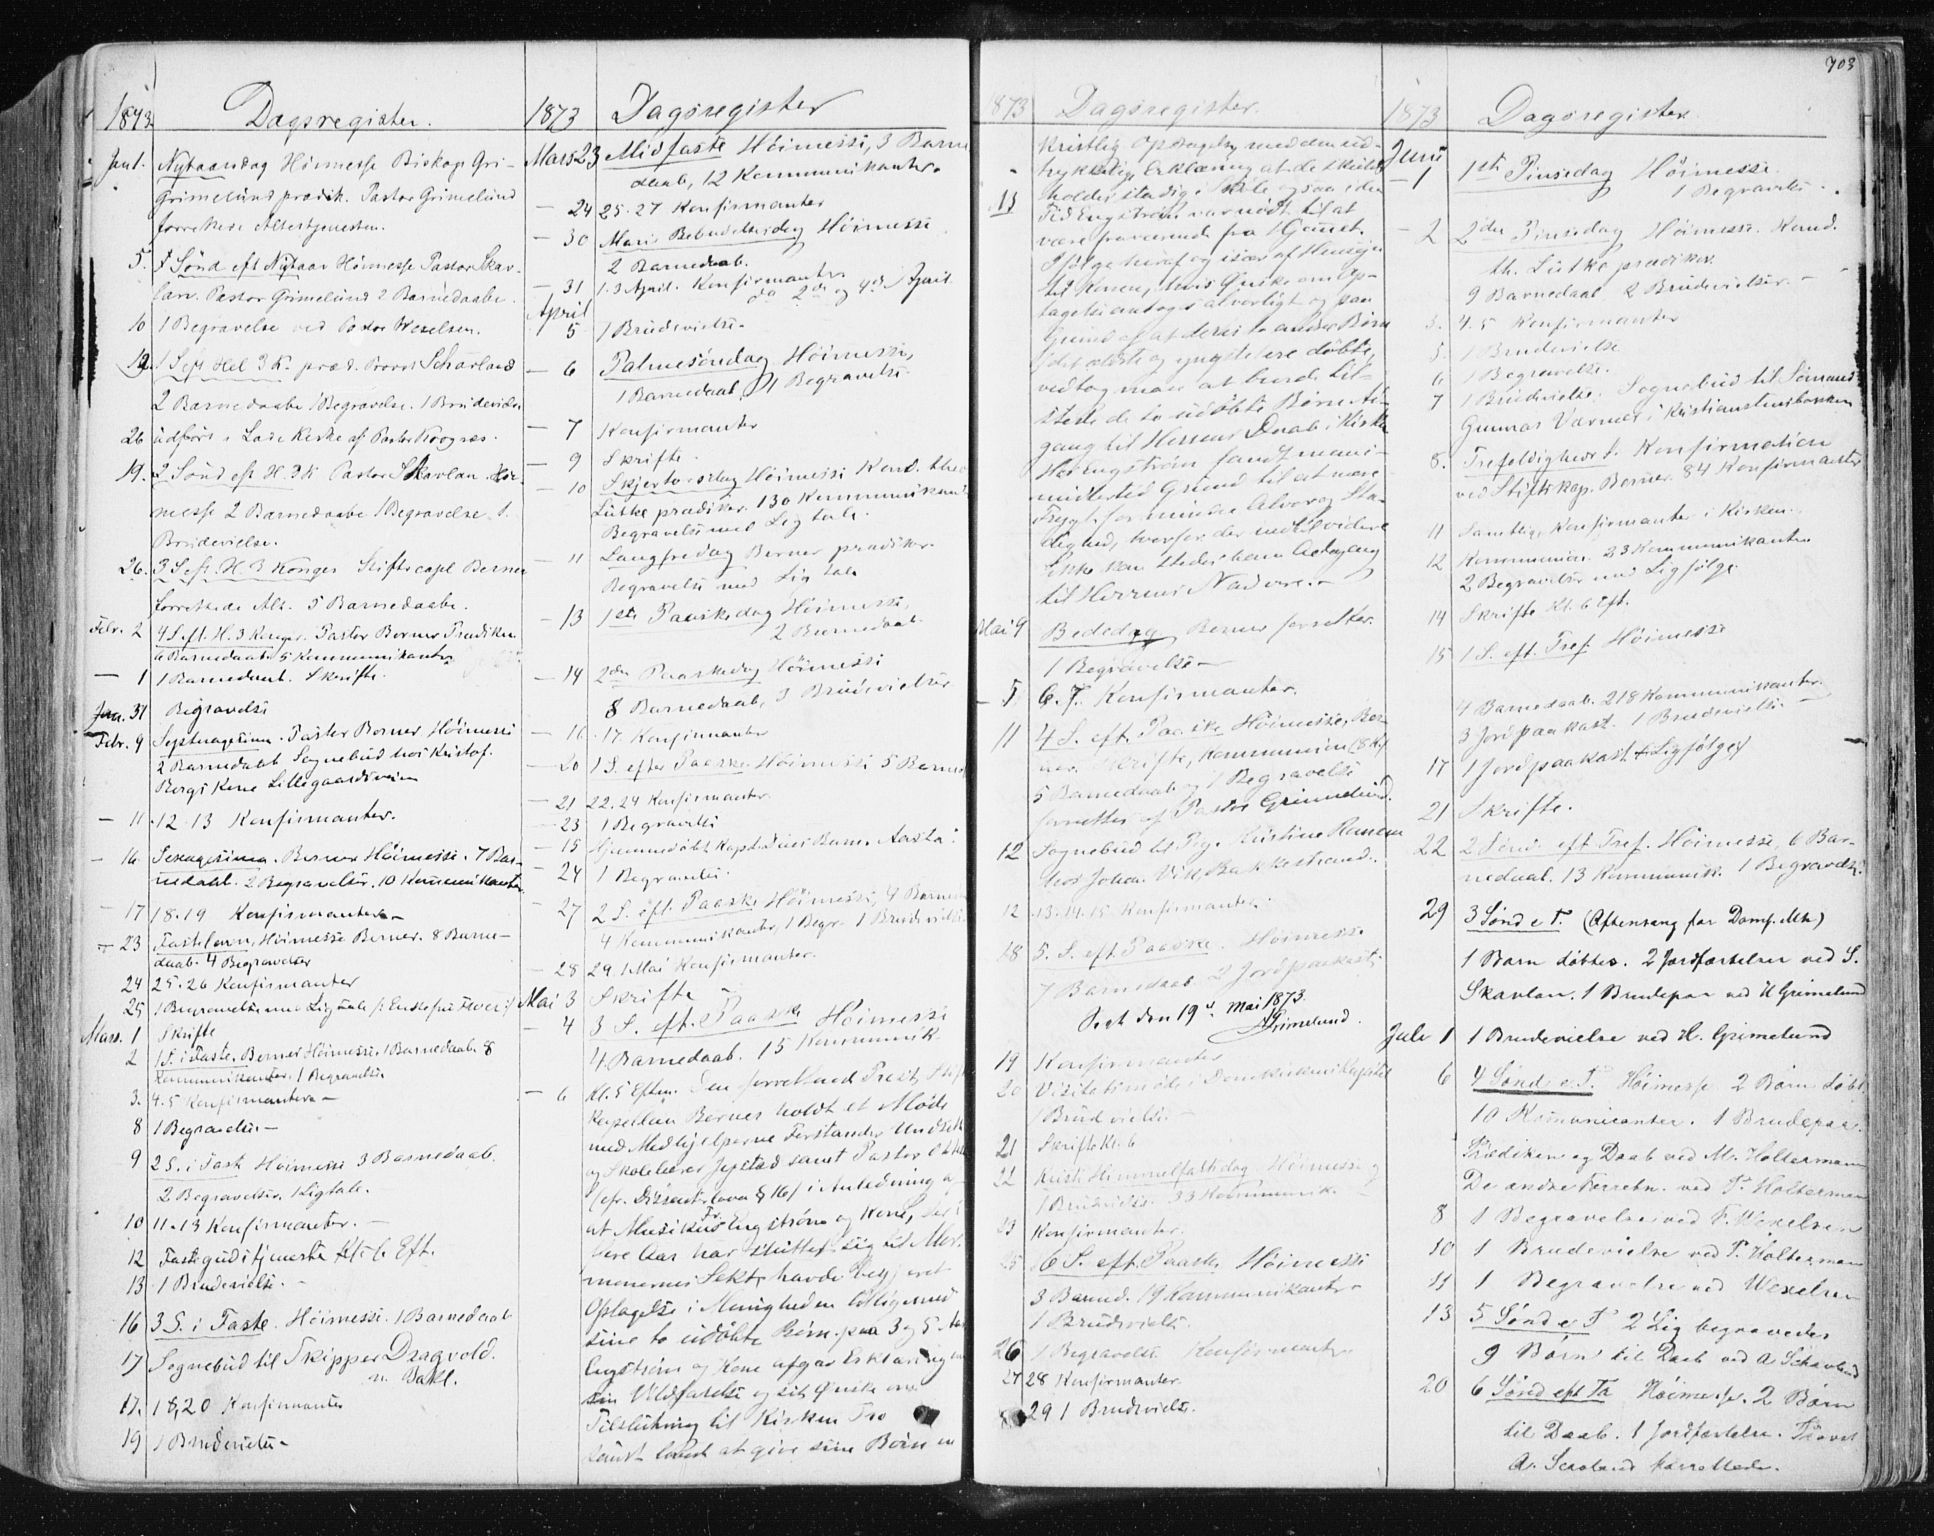 703
1873 Dagsregister.
Jan 1. Nytaarsdag Høimesse Biskop Gri-
Grimelund prædik. Pastor Grimelund
forrettede Altertjenesten.
5. S. Sønd eft Nytaar Høimesse Pastor Skav-
lan. Pastor Grimelund 2 Barnedaabe.
10 1 Begravelse ved Pastor Wexelsen.
1 Seft Hel 3 K. præd. Provst Schavland
2 Barnedaabe 1 Begravelse. 1 Brudevielse
26 udført i Lade Kirke af Pastor Krognæs.
19. 2 Sønd eft H. 3 K Pastor Skavlan. Høi-
messe 2 Barnedaabe 1 Begravelse. 1.
Brudevielse.
26. 3 S eft. H 3 Konger Stiftscapl Berner
forrettede Alt. 5 Barnedaabe.
Febr. 2 4 S eft. H. 3 Konger. Pastor Berner Prædiken
6 Barnedaab 5 Kommunikanter
1 1 Barnedaab. Skrifte.
Jan. 31 Begravelse
Febr. 9 Septuagesima. Pastor Berner Høimessi
2 Barnedaab Sognebud hos Kristof.
Bergs Kone Lillegaardsveien
11. 12. 13 Konfirmanter.
16. Sexagesima. Berner Høimessi. 7 Bar-
nedaab. 2 Begravelser. 10 Kommunikanter
17 18. 19 Konfirmanter
23 Fastelavn, Høimesse Berner. 8 Barne-
daab. 4 Begravelser
24 25. 26 Konfirmanter
25 1 Begravelse med Ligtale
Mars. 1 Skrifte
2 1 S. i Faste. Berner Høimessi. 1 Barnedaab. 8
Kommunikanter. 1 Begravelse
3. 4. 5 Konfirmanter
8 1 Begravelse
9 2 S. i Fast Høimesse 3 Barnedaab.
2 Begravelser. 1 Ligtale.
10 11. 13 Konfirmanter.
12 Fastegudstjeneste Kl. 6 Eft.
13 1 Brudevielse.
16 3 S. i Faste. Høimessi. 1 Barnedaab
17 Sognebud til Skipper Dragvold.
n. Bakl.
17. 18, 20 Konfirmanter
19 1 Brudevielse
1873 Dagsregister
Mars 23 Midfaste Høimessi, 3 Barne
daab, 12 Kommunikanter.
24 25. 27 Konfirmanter
30 Mariæ Bebudelsesdag Høimessi
2 Barnedaab.
31 1. 3 April. Konfirmanter
do 2de og 4de April
April
5 1 Brudevielse.
6 Palmesøndag Høimessi,
1 Barnedaab, 1 Begravelse.
7 Konfirmanter
9 Skrifte.
10 Skjertorsdag Høimessi Kand. theol
Lütke prædiker. 130 Kommunikan
Begravelse med Ligtale.
11 Langfredag Berner prædiker.
Begravelse med Ligtale
13 1ste Paaskedag Høimessi,
2 Barnedaab
14 2den Paaskedag Høimessi
8 Barnedaab, 3 Brudevielser
16. 17 Konfirmanter
20 1 S. efter Paaske Høimessi 5 Barned
21 22. 24 Konfirmanter.
23 1 Begravelse
15 Hjemmedøbt Kapt. Dües Barn. Aasta.
24 1 Begravelse.
27 2 S. eft. Paaske Høimessi, 4 Barned
4 Kommunikanter, 1 Begr. 1 Brudevielse
28 29. 1 Mai Konfirmanter.
Mai 3 Skrifte
4 3 S. eft. Paaske Høimessi
4 Barnedaab. 15 Kommunik.
6 Kl. 5 Eftm. Den forrettende Præst, Stifts
kapellan Berner holdt et Møde
med Medhjelperne Forstander Undseth
og Skolelærer Jystad samt Pastor
(efr. Dissenterloven § 16) i Anledning af
at Musikus Fr. Engstrøm og Kone, der i
flere Aar har sluttet sig til Mor-
monernes Sekt, havde begjeret
Optagelse i Menigheden tilligemed
sine to udøbte Børn paa 3 og 5 Aar
Engstrøm og Kone afgav Erklæring om
sin Vildfarelse og sit Ønske om
Tilslutning til Kirkens Tro
samt lovet at give sine Børn en
1873 Dagsregister.
Kristelig Opdragelse med den ud-
trykkelige Erklæring at de skulde
holdes stadig i Skole ogsaa i den
Tid Engstrøm var nødt til at
være fraværende fra Hjemmet.
Ifølge heraf og især af Hensyn
til Konen, hvis Ønske om Op-
tagelse antoges alvorligt og paa
Grund af at deres to andre Børn
(det ældste og yngste) ere døbte,
vedtog man at burde til-
stede de to udøbte Børn Ad-
gang til Herrens Daab i Kirken
Hos Engstrøm fandt man i-
midlertid Grund til at nære
Frygt for mindre Alvor og Sta-
dighed, hvorfor der indtil videre
ikke kan stedes ham Adgang
til Herrens Nadvere.
Mai 9 Bededag Berner forretter.
1 Begravelse
5 6. 7. Konfirmanter.
11 4 S. eft. Paaske Høimesse, Ber-
ner. Skrifte, Kommunion (8 K.)
5 Barnedaab og 1 Begravelse
forrettes af Pastor Grimelund.
12 Sognebud til Pige Kristine Ramem
hos Johan Vik Bakkestrand.
12. 13. 14. 15. Konfirmanter.
18 5. S. eft. Paaske. Høimessi
7 Barnedaab 2 Jordpaakast
Seet den 19de Mai 1873.
Grimelund.
19 Konfirmanter
20 Visitatsmøde i Domkirkens Kapitel
1 Brudevielse
21 Skrifte Kl. 6
22 Kristi Himmelfartsdag Høimessi og
1 Brudevielse. 33 Kommunik.
23 Konfirmanter.
25 6 S. eft. Paaske Høimessi
3 Barned. 19 Kommunikanter
1 Brudevielse.
26 1 Begravelse Konfirmanter
27 28 Konfirmanter.
29 1 Brudevielse.
1873 Dagsregister.
Juni
1 1ste Pinsedag Høimesse.
1 Begravelse.
2 2den Pinsedag Høimesse. Kand.
th. Lütke prædiker
9 Barnedaab 2 Brudevielser.
3. 4. 5 Konfirmanter
5. 1 Brudevielse
6 1 Begravelse.
7 1 Brudevielse. Sognebud til Sømand
Gunnar Varnes i Kristianstensbakken
8. Trefoldigheds S. Konfirmation
ved Stiftskap. Berner. 84 Konfirmanter
11 Samtlige Konfirmanter i Kirken.
12 Kommunion. 23 Kommunikanter
2 Begravelser med Ligfølge
14 Skrifte Kl. 6 Eft.
15 1 S. eft. Tref. Høimesse
4 Barnedaab. 218 Kommunikanter.
3 Jordpaakast. 1 Brudevielse.
17 1 Jordpaakast (Ligfølge)
21 Skrifte.
22 2 Sønd. eft Tref. Høimesse, 6 Bar-
nedaab. 13 Kommunik. 1 Begravelse.
29 3 Sønd e T. (Aftensang for Domp. Mh)
1 Barn døbtes. 2 Jordfæstelser ved S.
Skavlan. 1 Brudepar ved H Grimelund
Juli 1 1 Brudevielse ved H. Grimelund
6 4 Sønd e T. Høimesse 2 Børn døbt.
10 Komunicanter. 1 Brudepar.
Prædiken og Daab ved M. Holtermann
De andre Forretn. ved P. Holterman
8 1 Begravelse ved P. Wexelsen
10 1 Brudevielse ved P. Holterman
11 1 Begravelse ved Wexelsen
13 5 Sønd e T 2 Lig begravedes
9 Børn til Daab ved A Schavland
20 6 Sønd eft Ta Høimesse. 2 Børn
til Daab. 1 Jordfæstelse. Provst
A. Schavland forrettede.